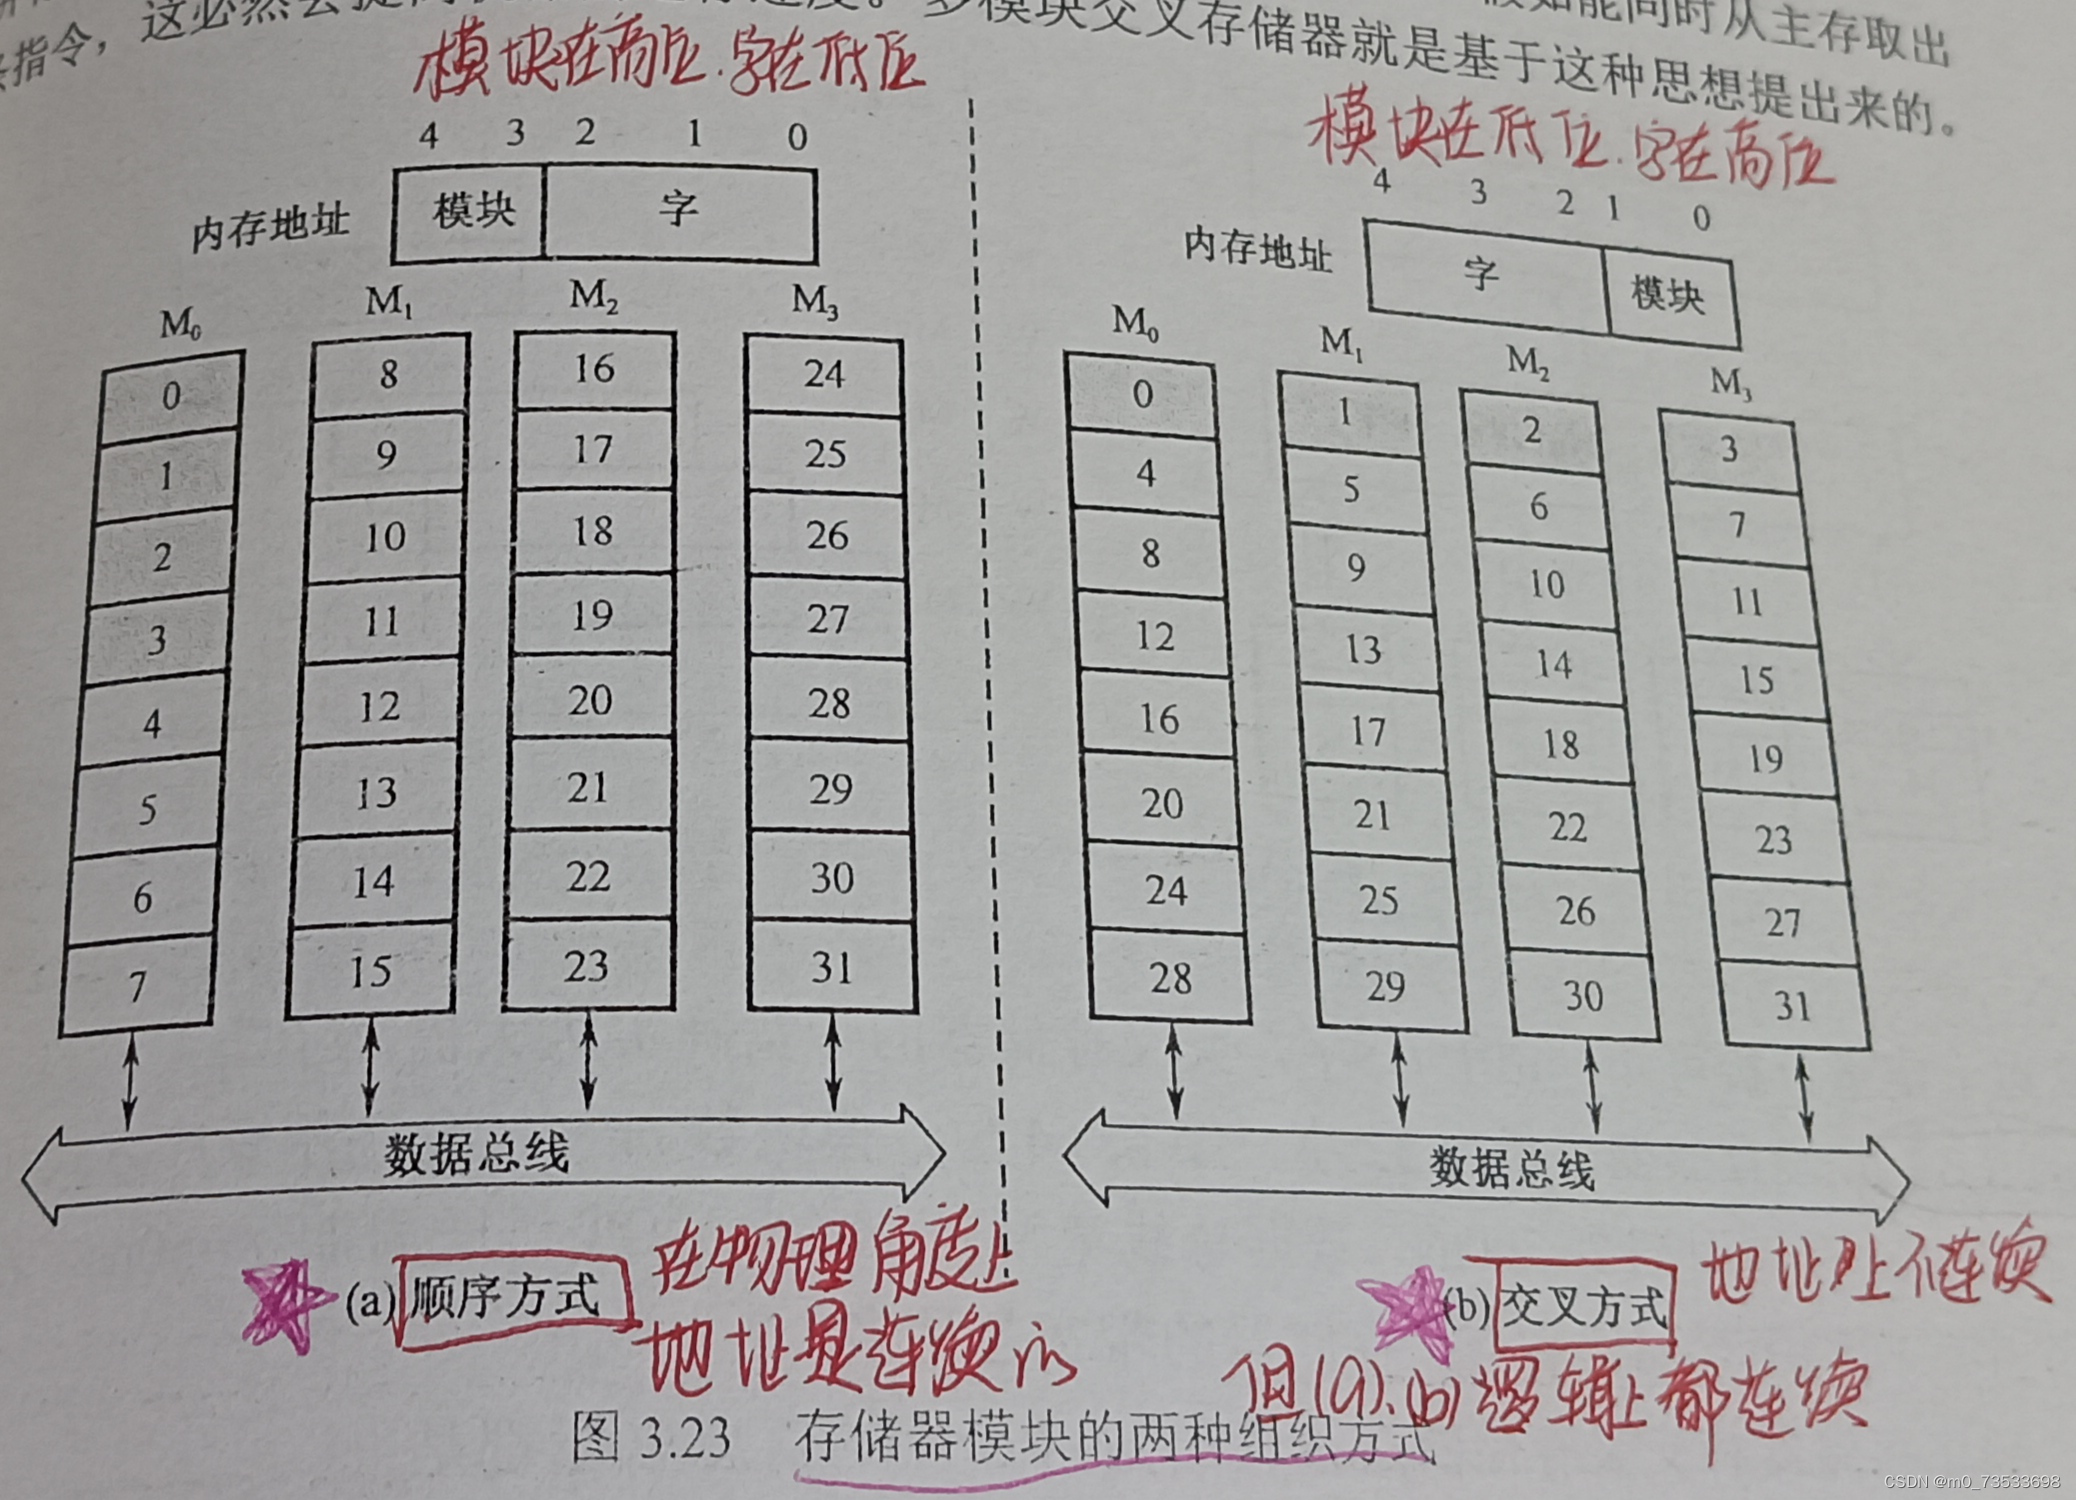 指令，这必然会提高
速度。多模块交叉存储器就是基于这种思想提出来的。
假如能同时从主存取出
模块在高位.字在低位
模块在低位.字在高位
4 3 2 1 0
内存地址 模块 字
M₀ M₁ M₂ M₃
0 8 16 24
1 9 17 25
2 10 18 26
3 11 19 27
4 12 20 28
5 13 21 29
6 14 22 30
7 15 23 31
数据总线
(a) 顺序方式
在物理角度上
地址是连续的
4 3 2 1 0
内存地址 字 模块
M₀ M₁ M₂ M₃
0 1 2 3
4 5 6 7
8 9 10 11
12 13 14 15
16 17 18 19
20 21 22 23
24 25 26 27
28 29 30 31
数据总线
(b) 交叉方式
地址上不连续
但(a).(b)逻辑上都连续
图 3.23 存储器模块的两种组织方式
CSDN @m0_73533698